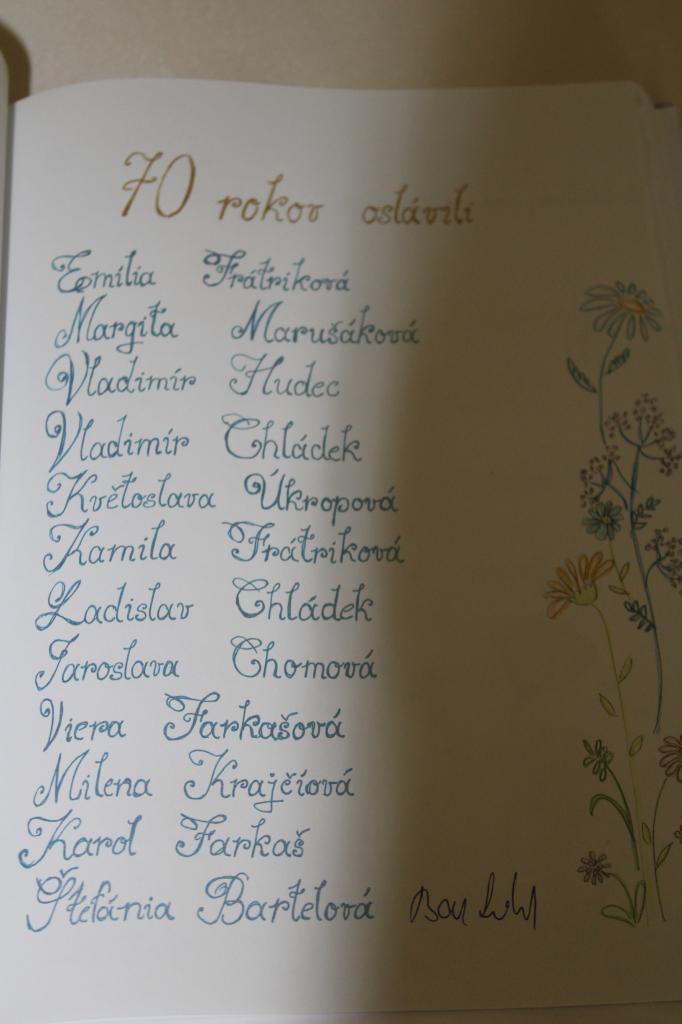 70 rokov oslávili
Emília Frátriková
Margita Marušáková
Vladimír Hudec
Vladimír Chládek
Květoslava Úkropová
Kamila Frátriková
Ladislav Chládek
Jaroslava Chomová
Viera Farkašová
Milena Krajčíová
Karol Farkaš
Štefánia Bartelová